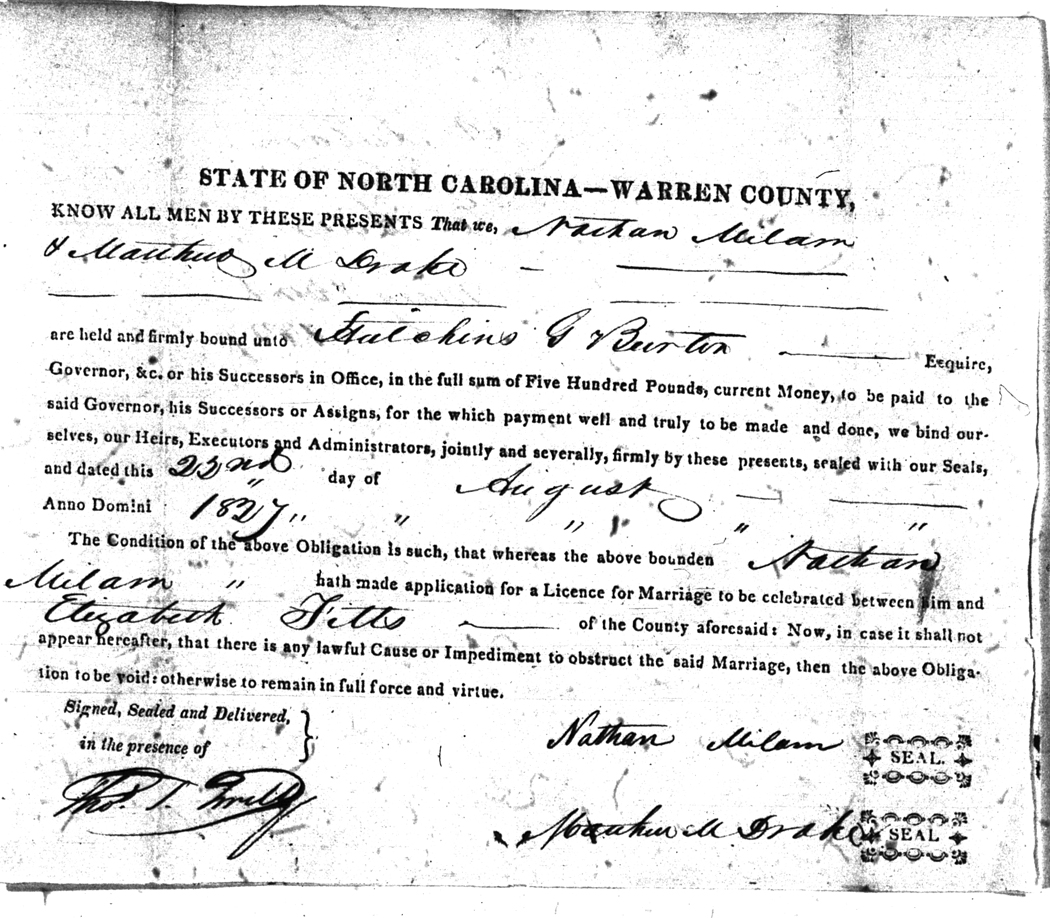 STATE OF NORTH CAROLINA—WARREN COUNTY,
KNOW ALL MEN BY THESE PRESENTS That we, Nathan Milam
& Matthew M Drake
are held and firmly bound unto Hutchins G Burton Esquire,
Governor, &c. or his Successors in Office, in the full sum of Five Hundred Pounds, current Money, to be paid to the
said Governor, his Successors or Assigns, for the which payment well and truly to be made and done, we bind our-
selves, our Heirs, Executors and Administrators, jointly and severally, firmly by these presents, sealed with our Seals,
and dated this 22nd day of August
Anno Domini 1827 " " " " "
The Condition of the above Obligation is such, that whereas the above bounden Nathan
Milam " hath made application for a Licence for Marriage to be celebrated between him and
Elizabeth Fitts of the County aforesaid: Now, in case it shall not
appear hereafter, that there is any lawful Cause or Impediment to obstruct the said Marriage, then the above Obliga-
tion to be void: otherwise to remain in full force and virtue.
Signed, Sealed and Delivered,
in the presence of
Nathan Milam SEAL.
Thos. T.
Matthew M Drake SEAL